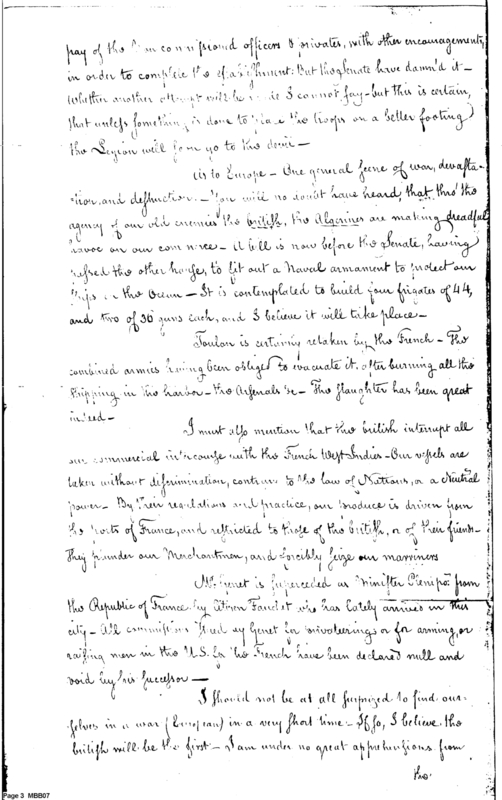 pay of the non commissioned officers & privates, with other encouragements,
in order to complete the establishment: But the Senate have damn'd it—
Whether another attempt will be made I cannot say—but this is certain,
that unless something is done to place the troops on a better footing
the Legion will some go to the devil—
As to Europe— One general scene of war, devasta-
tion and destruction.— You will no doubt have heard, that thro' the
agency of our old enemies the british, the Algerines are making dreadful
havoc on our commerce— A bill is now before the Senate, having
passed the other house, to fit out a Naval armament to protect our
ships on the Ocean— It is contemplated to build four frigates of 44,
and two of 36 guns each, and I believe it will take place—
Toulon is certainly retaken by the French— The
combined armies having been obliged to evacuate it after burning all the
shipping in the harbor— the Arsenals &c— The slaughter has been great
indeed—
I must also mention that the british interrupt all
our commercial intercourse with the French West Indies— Our vessels are
taken without discrimination, contrary to the law of Nations, or a Neutral
power— By their regulations and practice, our produce is driven from
the ports of France, and restricted to those of the british, or of their friends—
They plunder our Merchantmen, and forcibly seize our marriners
Mr Genet is superceded as Minister Plenipo: from
the Republic of France by Citizen Fauchet who has lately arrived in this
city— All commissions issued by Genet for privateering or for arming, or
raising men in the U.S. for the French have been declared null and
void by his successor—
I should not be at all surprized to find our-
selves in a war (European) in a very short time— If so, I believe the
british will be the first— I am under no great apprehensions from
the
Page 3 MBB07